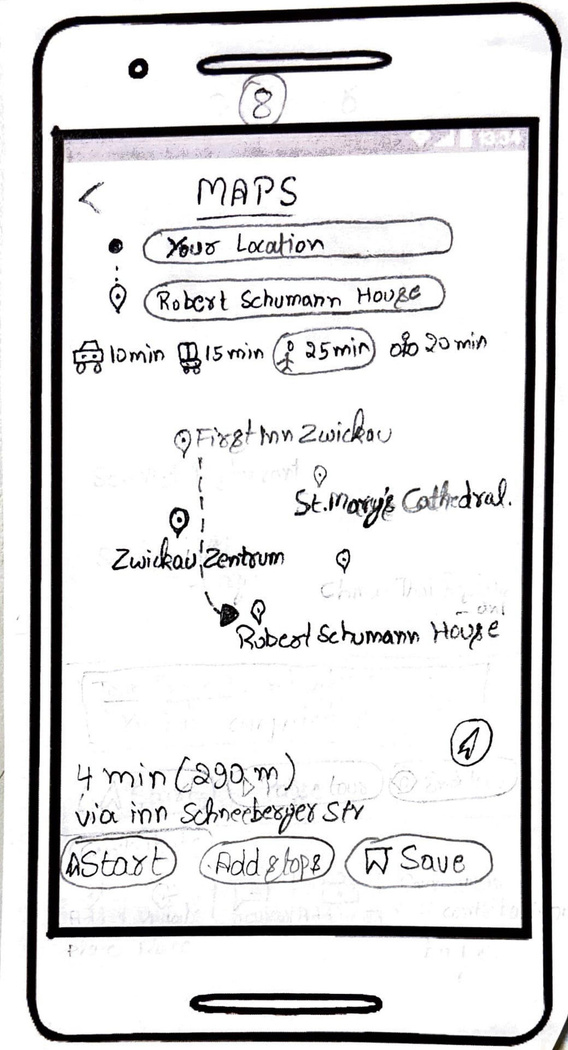 8
< MAPS
Your Location
Robert Schumann House
10min 15 min 25min 20 min
First Inn Zwickau
St. Mary's Cathedral.
Zwickau Zentrum
Robert Schumann House
4 min (290 m)
via inn Schneeberger Str
Start Add stops Save